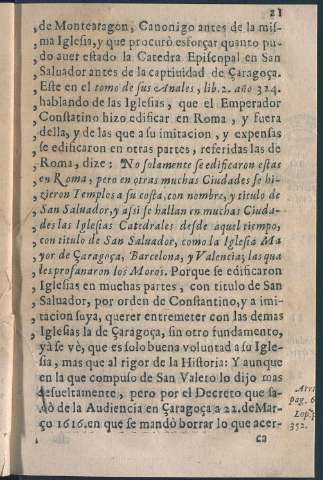 21
, de Montearagon, Canonigo antes de la mis-
, ma Iglesia, y que procurò esforçar quanto pu-
, do auer estado la Catedra Episcopal en San
, Saluador antes de la captiuidad de Çaragoça.
, Este en el tomo de sus Anales, lib. 2. año 324.
, hablando de las Iglesias, que el Emperador
, Constatino hizo edificar en Roma, y fuera
, della, y de las que a su imitacion, y expensas
, se edificaron en otras partes, referidas las de
, Roma, dize: No solamente se edificaron estas
, en Roma, pero en otras muchas Ciudades se hi-
, zieron Templos a su costa, con nombre, y titulo de
, San Saluador, y assi se hallan en muchas Ciuda-
, des las Iglesias Catedrales desde aquel tiempo,
, con titulo de San Saluador, como la Iglesia Ma
, yor de Çaragoça, Barcelona, y Valencia, las qua
, les profanaron los Moros. Porque se edificaron
, Iglesias en muchas partes, con titulo de San
, Saluador, por orden de Constantino, y a imi-
, tacion suya, querer entremeter con las demas
, Iglesias la de Çaragoça, sin otro fundamento,
, yà se vè, que es solo buena voluntad a su Igle-
, sia, mas que al rigor de la Historia: Y aunque
, en la que compuso de San Valero lo dijo mas
, resueltamente, pero por el Decreto que sa-
, dò de la Audiencia en Çaragoça a 22. de Mar-
, ço 1616. en que se mandò borrar lo que acer-
ca
pag. 6
Lop. p
352.